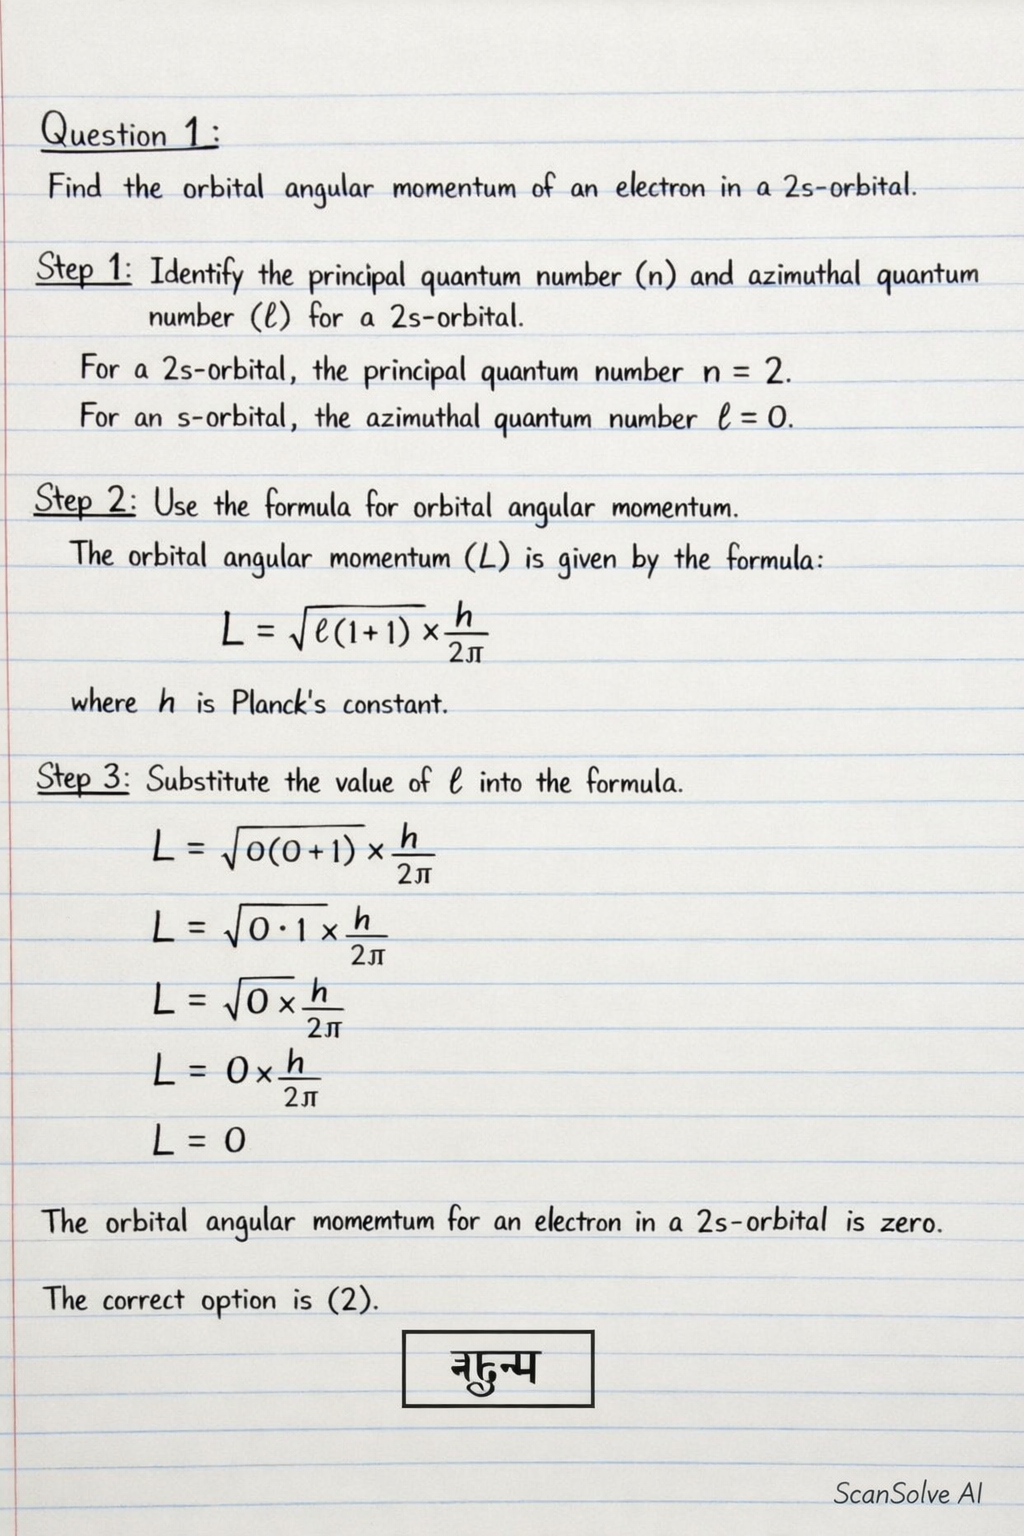 Question 1:
Find the orbital angular momentum of an electron in a 2s-orbital.
Step 1: Identify the principal quantum number (n) and azimuthal quantum
number (ℓ) for a 2s-orbital.
For a 2s-orbital, the principal quantum number n = 2.
For an s-orbital, the azimuthal quantum number ℓ = 0.
Step 2: Use the formula for orbital angular momentum.
The orbital angular momentum (L) is given by the formula:
L = √ℓ(1+1) × h/2π
where h is Planck's constant.
Step 3: Substitute the value of ℓ into the formula.
L = √0(0+1) × h/2π
L = √0·1 × h/2π
L = √0 × h/2π
L = 0 × h/2π
L = 0
The orbital angular momemtum for an electron in a 2s-orbital is zero.
The correct option is (2).
ScanSolve AI